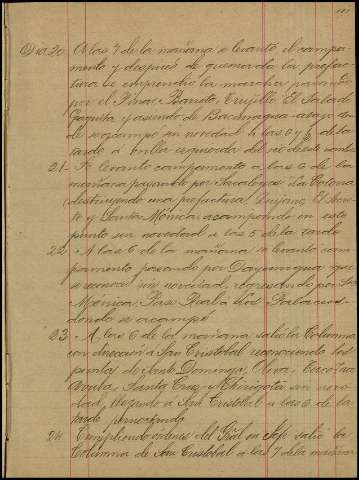 Dia 20 A las 7 de la mañana se levantó el campa-
mento y despues de quemada la prefec-
tura se emprendió la marcha pasando
por el Pinar, Barreto, Trujillo El Salado
y siendo de Bacunagua abajo don
de se acampó sin novedad á las 6 y ½ de la
tarde á orilla izquierda del rio de este nombre
21 - Se levantó campamento a las 6 de la
mañana pasando por La Paloma
(destruyendo una prefectura)
y Santa Mónica acampando en este
punto sin novedad a las 5 de la tarde
22 - A las 6 de la mañana se levantó cam-
pamento pasando por que
se reconoció sin novedad, regresando por Sta
Mónica, Rio Los Palacios
donde se acampó
23 - A las 6 de la mañana salió la Columna
con direccion á San Cristobal reconociendo los
puntos de Santo Domingo, Oliva,
Santa Cruz y Chirigota sin nove
dad, llegando a San Cristobal a las 6 de la
tarde pernoctando
24 - Cumpliendo órdenes del Gral en Jefe salió la
Columna de San Cristobal a las 7 de la mañana